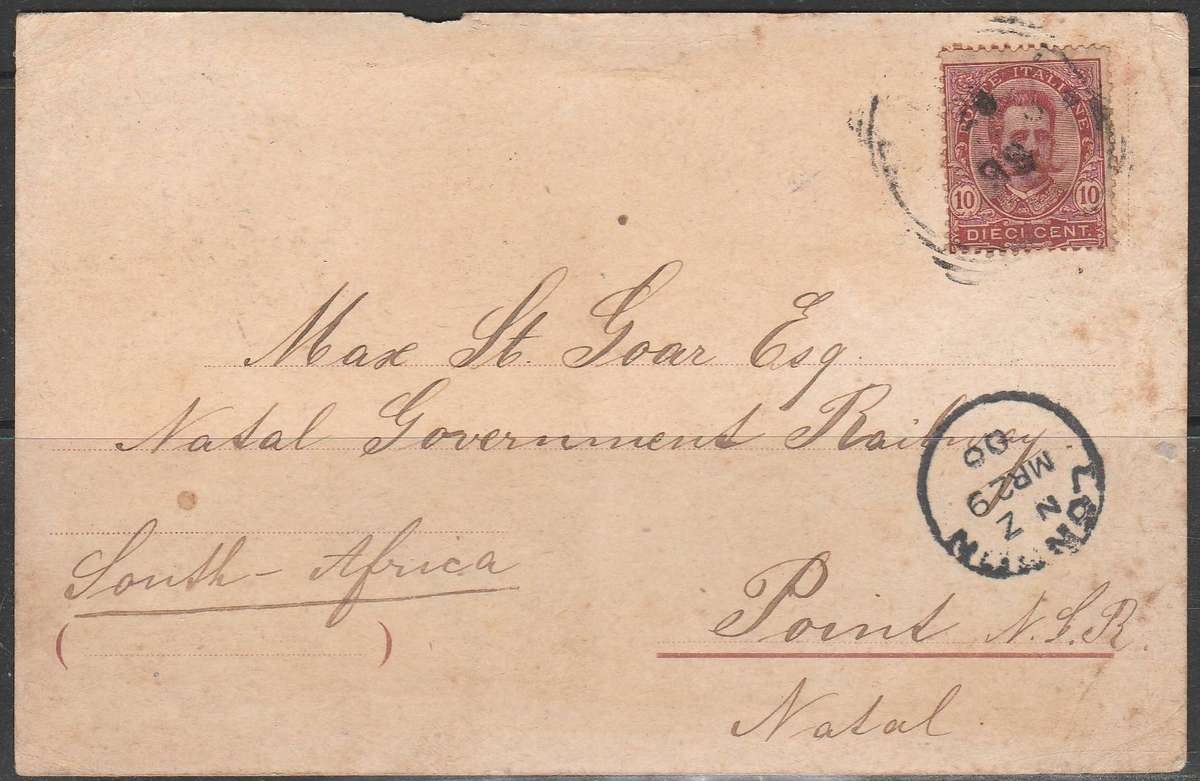 POSTE ITALIANE
10 10
DIECI CENT.
Max St. Goar Esq.
Natal Government Railway
LONDON
N Z
MR 29
00
South-Africa
Point N.G.R.
Natal.